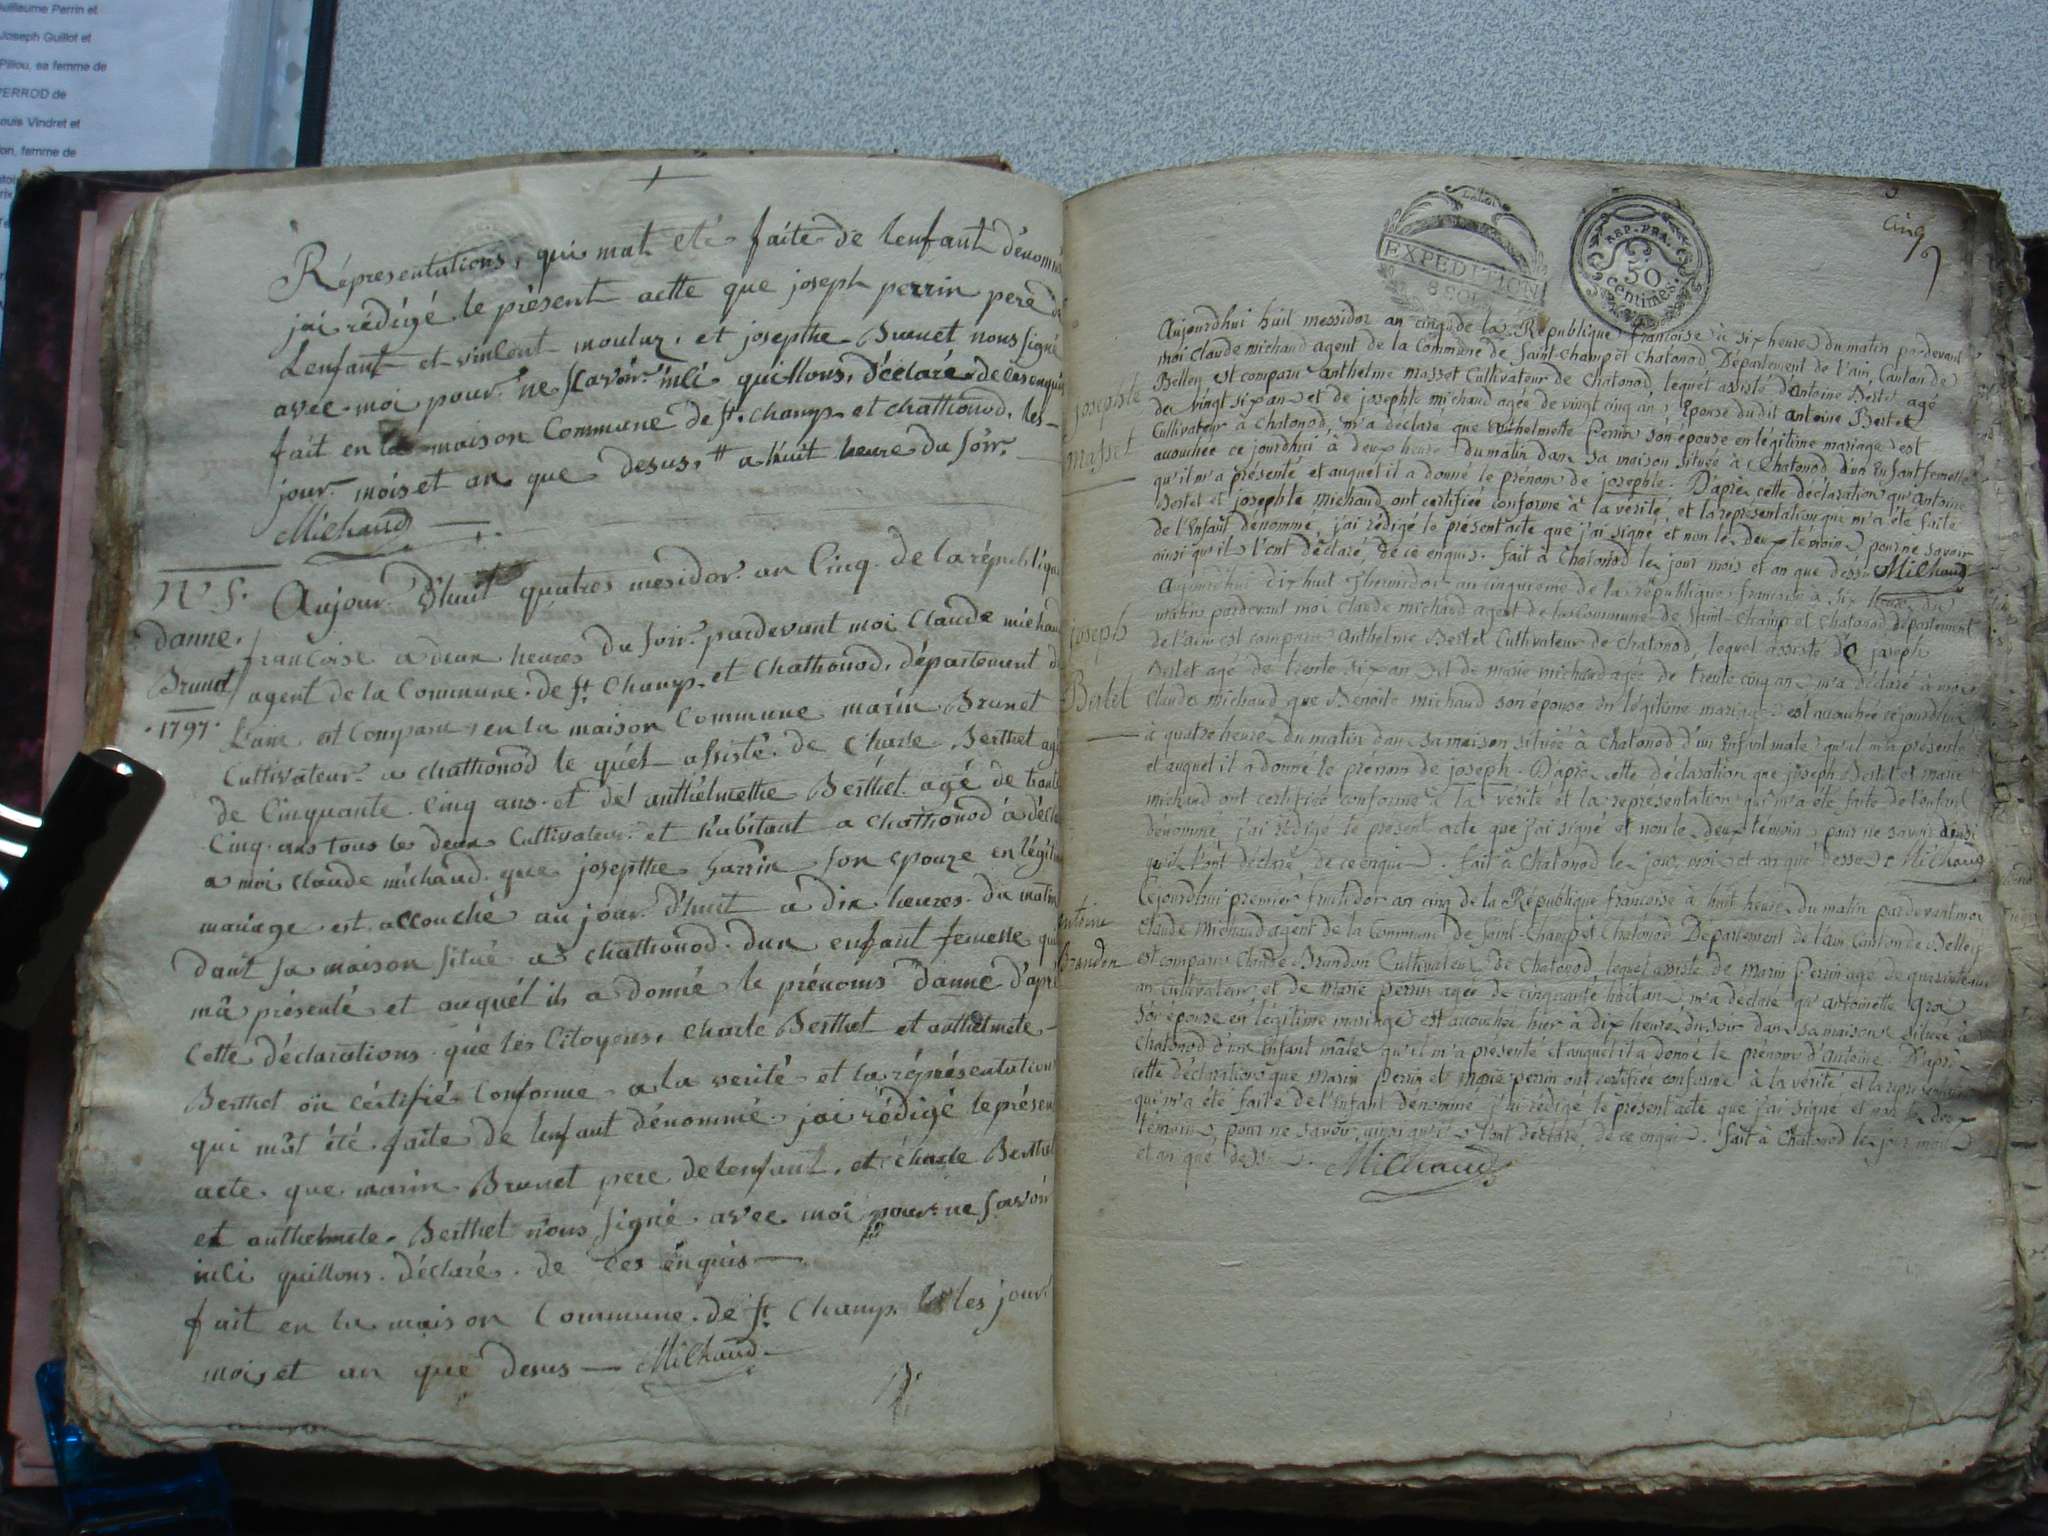 uillaume Perrin et
Joseph Guillot et
Pillou, sa femme de
PERROD de
ouis Vindret et
on, femme de
Répresentations, qui mat eté faite de lenfant dénommé
jai rédigé le présent actte que joseph perrin pere de
Lenfant et vincent moulur, et josepthe Brunet nous signé
avec moi pour ne scavoir inli quillons, déclaré de ces enquis
fait en la maison Commune de st. champ et chathonod, les
jour mois et an que desus, a huit heure du soir.
Michaud
N° 5.
danne.
Brunet
1797.
Aujour d'huit quatres mesidor an Cinq de la républiq
francoise a deux heures du soir pardevant moi Claude michau
agent de la Commune de st Champ et Chathonod, département d
Lain est Comparu en la maison Commune marin Brunet
Cultivateur a chathonod le quél assisté de Charle Berthet agé
de Cinquante Cinq ans et de anthelmethe Berthet agé de trante
Cinq ans tous les deux Cultivateur et habitant a chathonod a décl
a moi Claude michaud que josepthe Sarrin son epouze en légit
mariage est accouché aujour d'huit a dix heures du matin
dant sa maison situé a chathonod dun enfant femelle qui
mâ présenté et auquél ils a donné le prénoms danne d'apré
Cette déclarations que les Citoyens, charle Berthet et anthelmete
Berthet on cértifié Conforme a la verité et la réprésentation
qui mat été faite de lenfant dénommé jai rédigé le présent
acte que marin Brunet pere de lenfant, et charle Berthet
et anthelmete Berthet nous signé avec moi pour ne savoir
inli quillons déclaré de ces énquis
fait en la maison Commune de st Champ les jour
mois et an que desus Michaud
EXPEDITION
8 SOLS
REP. FRA.
50
centimes
cinq
josephte
masset
Aujourdhui huit messidor an cinq de la République francoise à six heure du matin pardevant
moi Claude michaud agent de la Commune de Saint-Champ et Chatonod Département de l'ain, Canton de
Belley est comparu Anthelme Masset Cultivateur de Chatonod, lequel assisté d'Antoine Bertet agé
de vingt six an et de josephte michaud agée de vingt cinq an, Epouse dudit Antoine Bertet
Cultivateur à Chatonod, m'a déclaré que Anthelmette Perrin son épouse en légitime mariage est
auouchée ce jourdhui à deux heure du matin dans sa maison située à Chatonod d'un Enfant femelle
qu'il m'a présenté et auquel il a donné le prénom de josephte. D'aprè cette déclaration qu'Antoine
Bertet et josephte michaud ont certifiée conforme à la vérité, et la représentation qui m'a été faite
de l'Enfant dénommé, j'ai rédigé le présent acte que j'ai signé et non le deux témoins, pour ne savoir
ainsi qu'il l'ont déclaré, de ce enquis. fait à Chatonod le jour mois et an que dessus Michaud
joseph
Bertet
Aujourdhui dix huit thermidor an cinquieme de la république francoise à six heure du
matin pardevant moi Claude michaud agent de la Commune de Saint-Champ et Chatonod département
de l'ain est comparu Anthelme Bertet Cultivateur de Chatonod, lequel assisté de joseph
Bertet agé de trente six an et de marie michaud agée de trente cinq an m'a déclaré à moi
Claude michaud que Benoite michaud son épouse en légitime mariage est auouchée cejourdhui
à quatre heure du matin dans sa maison située à Chatonod d'un Enfant male qu'il m'a présenté
et auquel il a donné le prénom de joseph. D'aprè cette déclaration que joseph Bertet et marie
michaud ont certifiée conforme à la vérité et la représentation qui m'a été faite de l'enfant
dénommé j'ai rédigé le présent acte que j'ai signé et non le deux témoin pour ne savoir ainsi
qu'il l'ont déclaré, de ce enquis. fait à Chatonod le jour, mois et an que dessus Michaud
antoine
Brandon
Cejourdhui premier fructidor an cinq de la République francoise à huit heure du matin pardevant moi
Claude Michaud agent de la Commune de Saint-Champ et Chatonod Département de l'ain Canton de Belley
est comparu Claude Brandon Cultivateur de Chatonod, lequel assisté de Marin Perrin agé de quarante
an Cultivateur et de Marie Perrin agée de cinquante huit an m'a déclaré qu'Antoinette Gros
son épouse en légitime mariage est auouchée hier à dix heure du soir dans sa maison située à
Chatonod d'un Enfant mâle qu'il m'a présenté et auquel il a donné le prénom d'Antoine. D'aprè
cette déclaration que Marin Perrin et Marie perrin ont certifiée conforme à la vérité et la représentation
qui m'a été faite de l'Enfant dénommé j'ai rédigé le présent acte que j'ai signé et non le deux
témoins, pour ne savoir, ainsi qu'il l'ont déclaré, de ce enquis. fait à Chatonod le jour mois
et an que dessus. Michaud